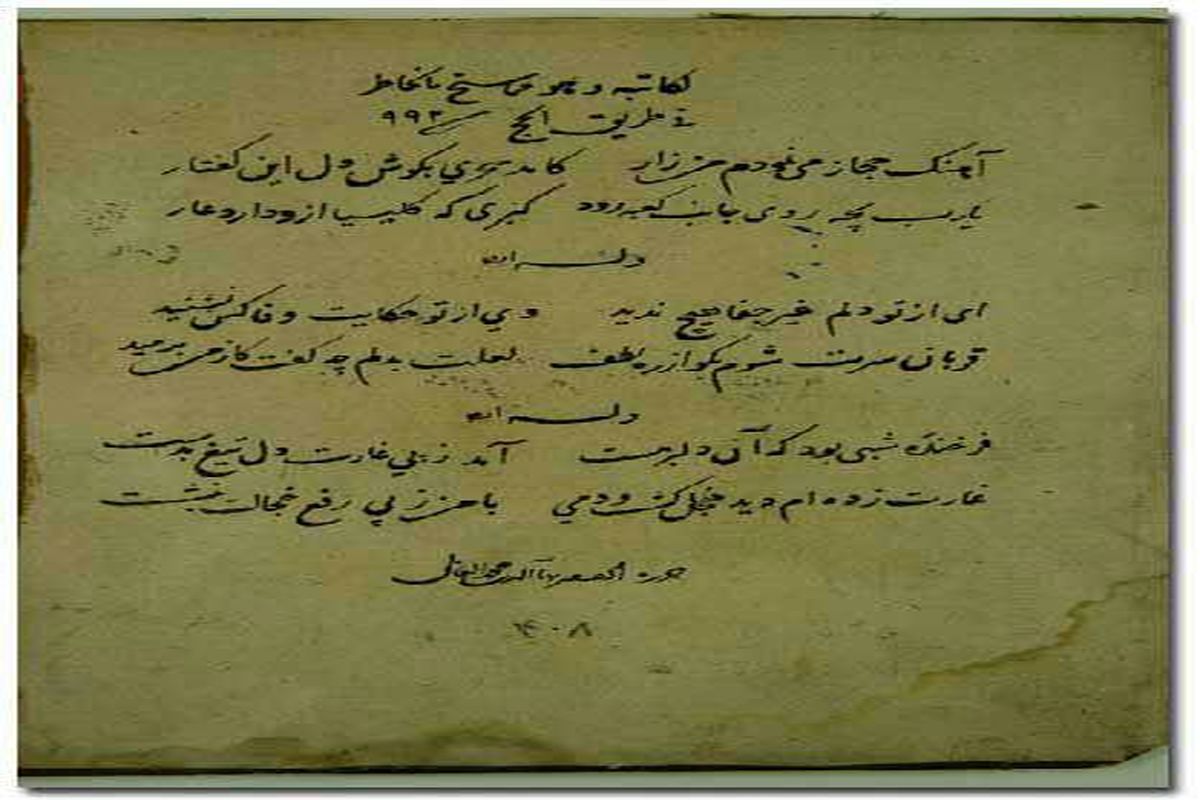 لکاتبه و هو مما سنح بالخاطر
فی طریق الحج سنه ۹۹۲
آهنک حجاز می نمودم من زار کامد سحری بکوش دل این کفتار
یارب بچه روی جانب کعبه رود کبری که کلیسیا ازو دارد عار
وله
ای از تو دلم غیر جفا هیچ ندید وی از تو حکایت وفا کس نشنید
قربان سرت شوم بکو از ره لطف لعلت بدلم چه کفت کز من برمید
وله
فرخنده شبی بود که آن دلبر مست آمد ز پی غارت دل تیغ بدست
غارت زده ام دید خجل کشت و دمی با من ز پی رفع خجالت بنشست
حرره بهاء الدین محمد العاملی